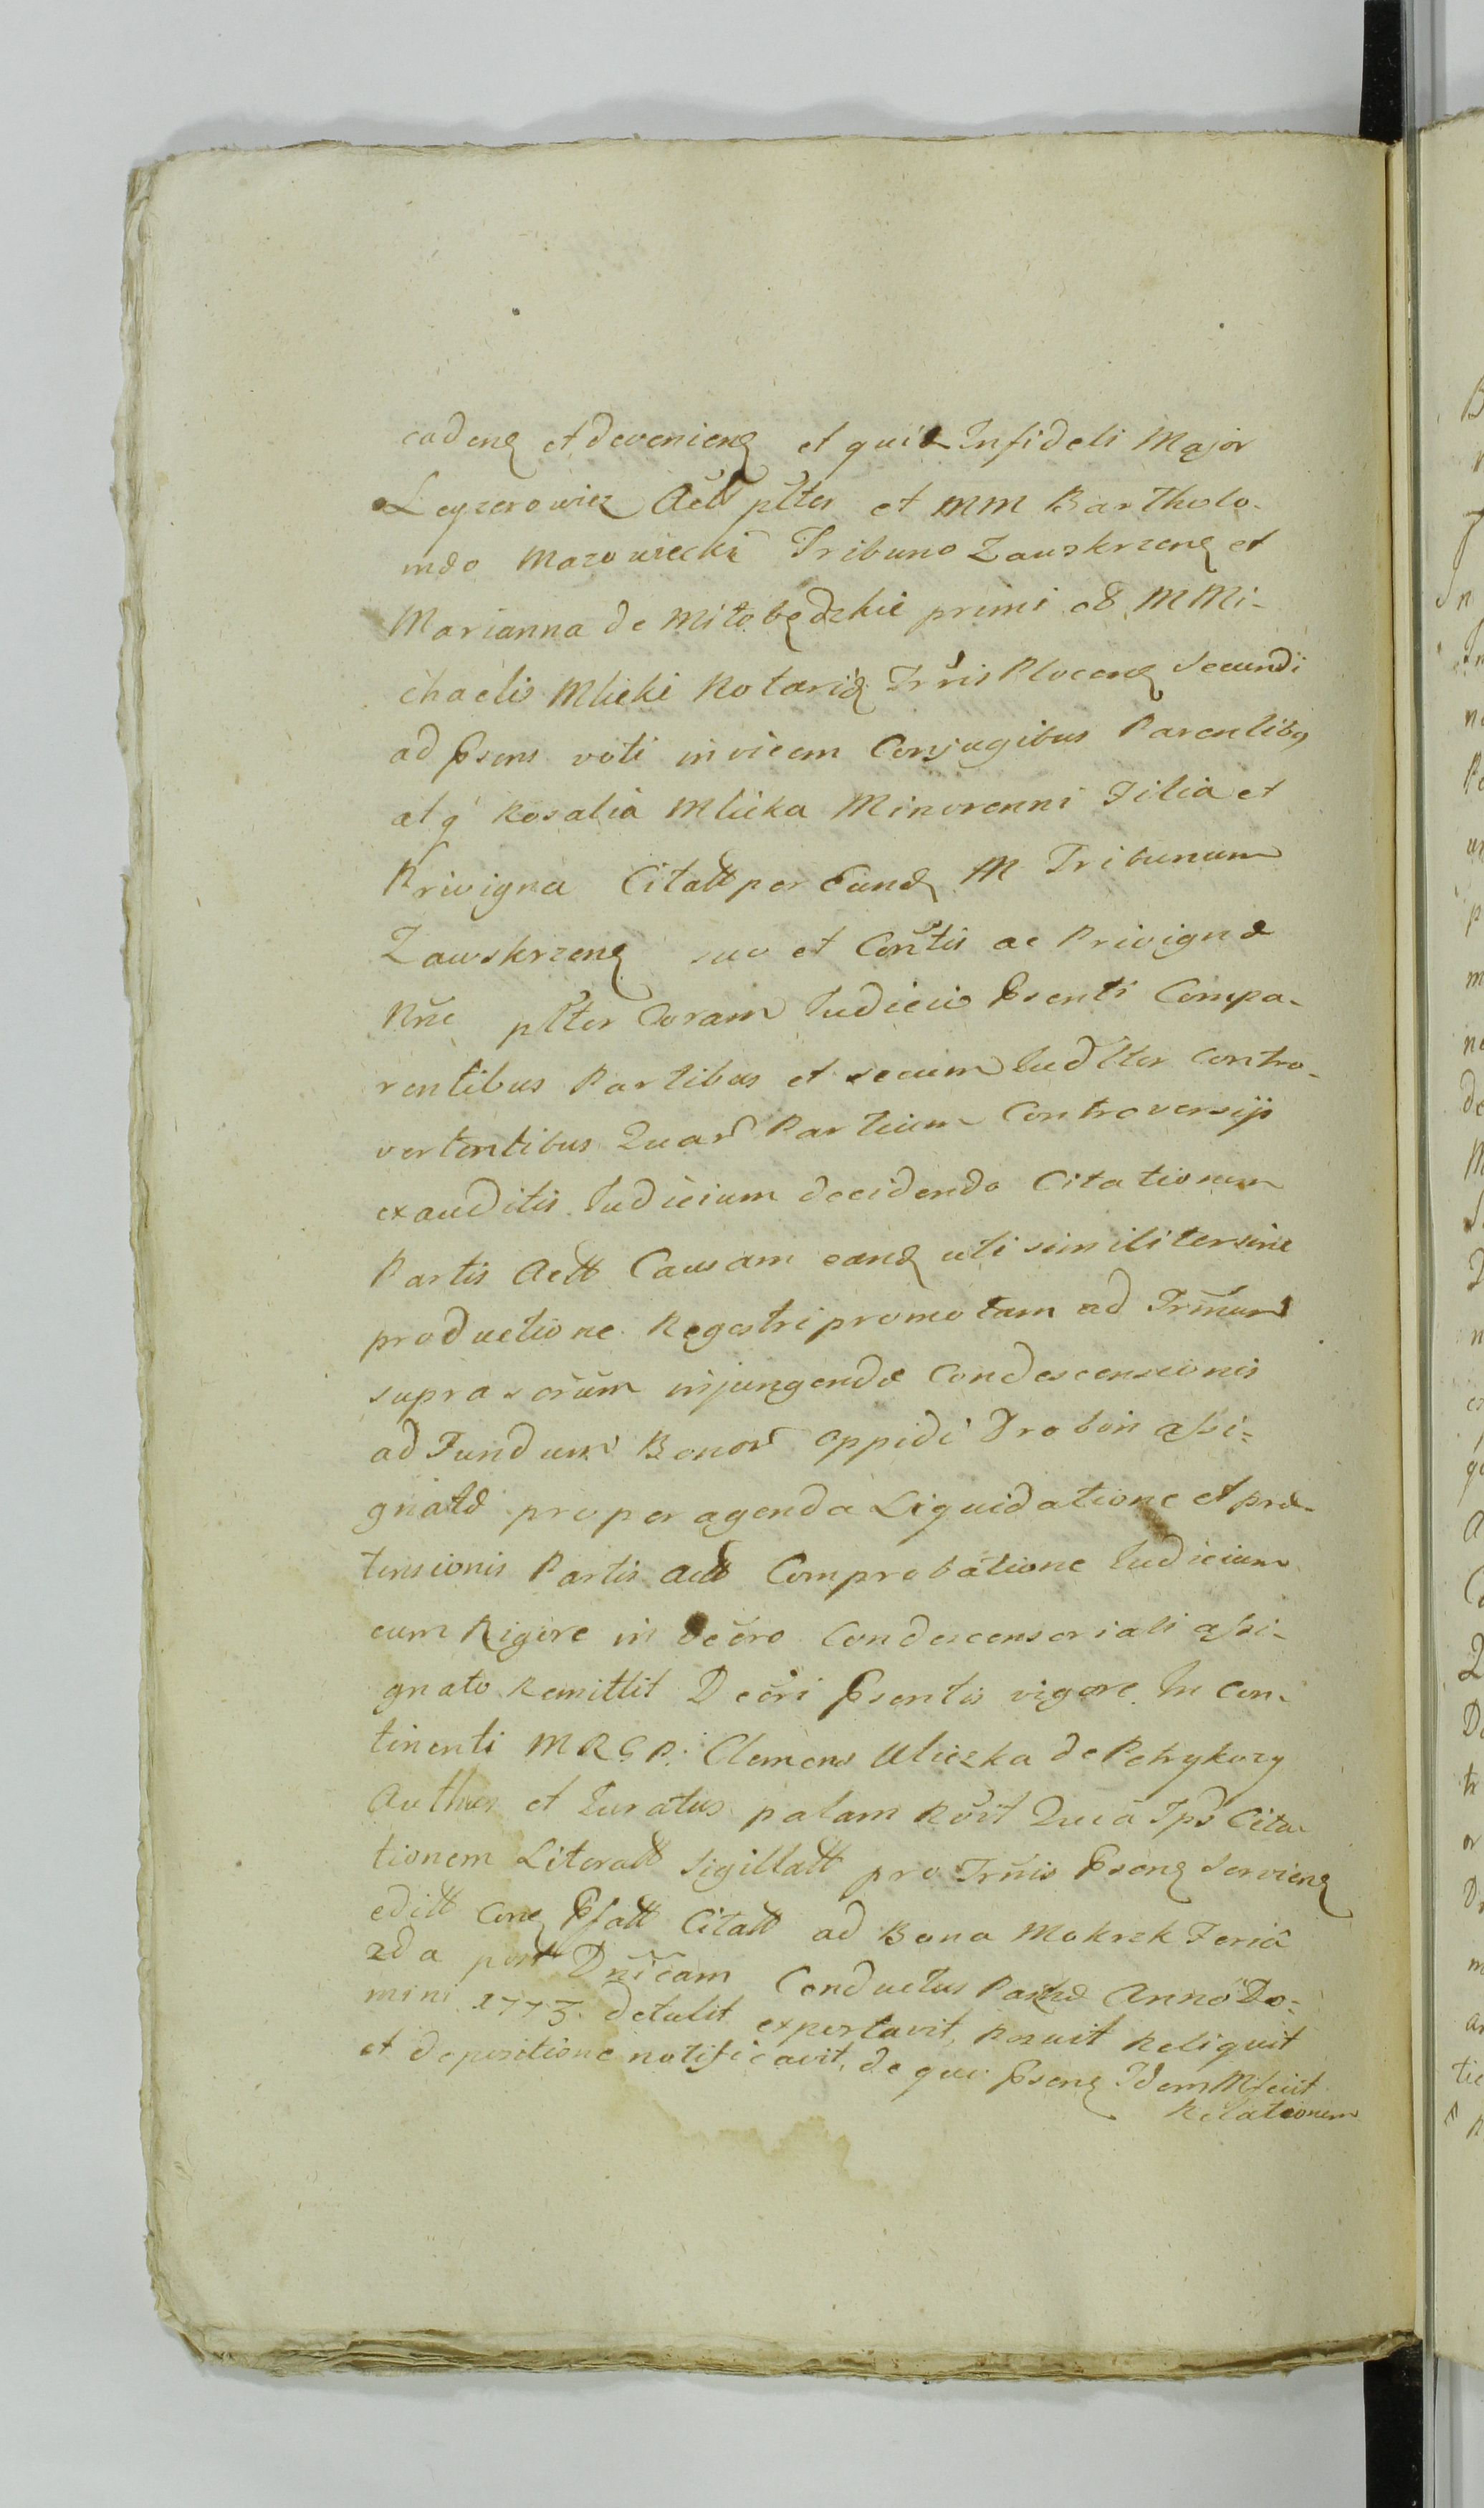 cadenȝ et devenienȝ et quia Infideli Major
Leyzerowicz Actt pltes et MM Bartholo-
mæo Mazowiecki Tribuno Zawskrzenȝ et
Marianna de Miłobędzkie primi olī MMi-
chaelis Mlicki Notariȝ Trrīs Plocenȝ Secundi
ad Psens voti invicem Conjugibus Parentibȝ
atq́ Rosalia Mlicka Minorenni Filia et
Privigna Citatt per Eundȝ M Tribunum
Zawskrzenȝ suo et Contis ac Privignæ
Nn̄e plter Coram Judicio Psenti Compa-
rentibus Partibus et secum Judlter contro-
vertentibus Quar̄ Partium Controversijs
exauditis Judicium decidendo Citationem
Partis Actt Causam eandȝ uti similiter sine
productione Regestri promotam ad Trm̄um
supra sorum injungendæ Condescensionis
ad Fundum Bonor̄ Oppidi Drobin assi-
gnatæ pro peragenda Liquidatione et præ-
tensionis Partis Actt Comprobatione Judicium
cum Rigore in Decro Condescensoriali assi-
gnato Remittit Decri Psentis vigore In con-
tinenti MRGP. Clemens Uliczka de Petrykozy
Authen et Juratus palam Rvit Quia Ips̄ Cita-
tionem Literatt Sigillatt pro Trmis Psenȝ Servienȝ
editt Conȝ Psatt Citatt ad Bona Mokrzk Feriâ
2da post Dnīcam Conductus Paschæ Anno Do-
mini 1773. detulit exportavit, Posuit Reliquit
et depositione notificavit, de quo Psenȝ Idem Mfecit
Relationem